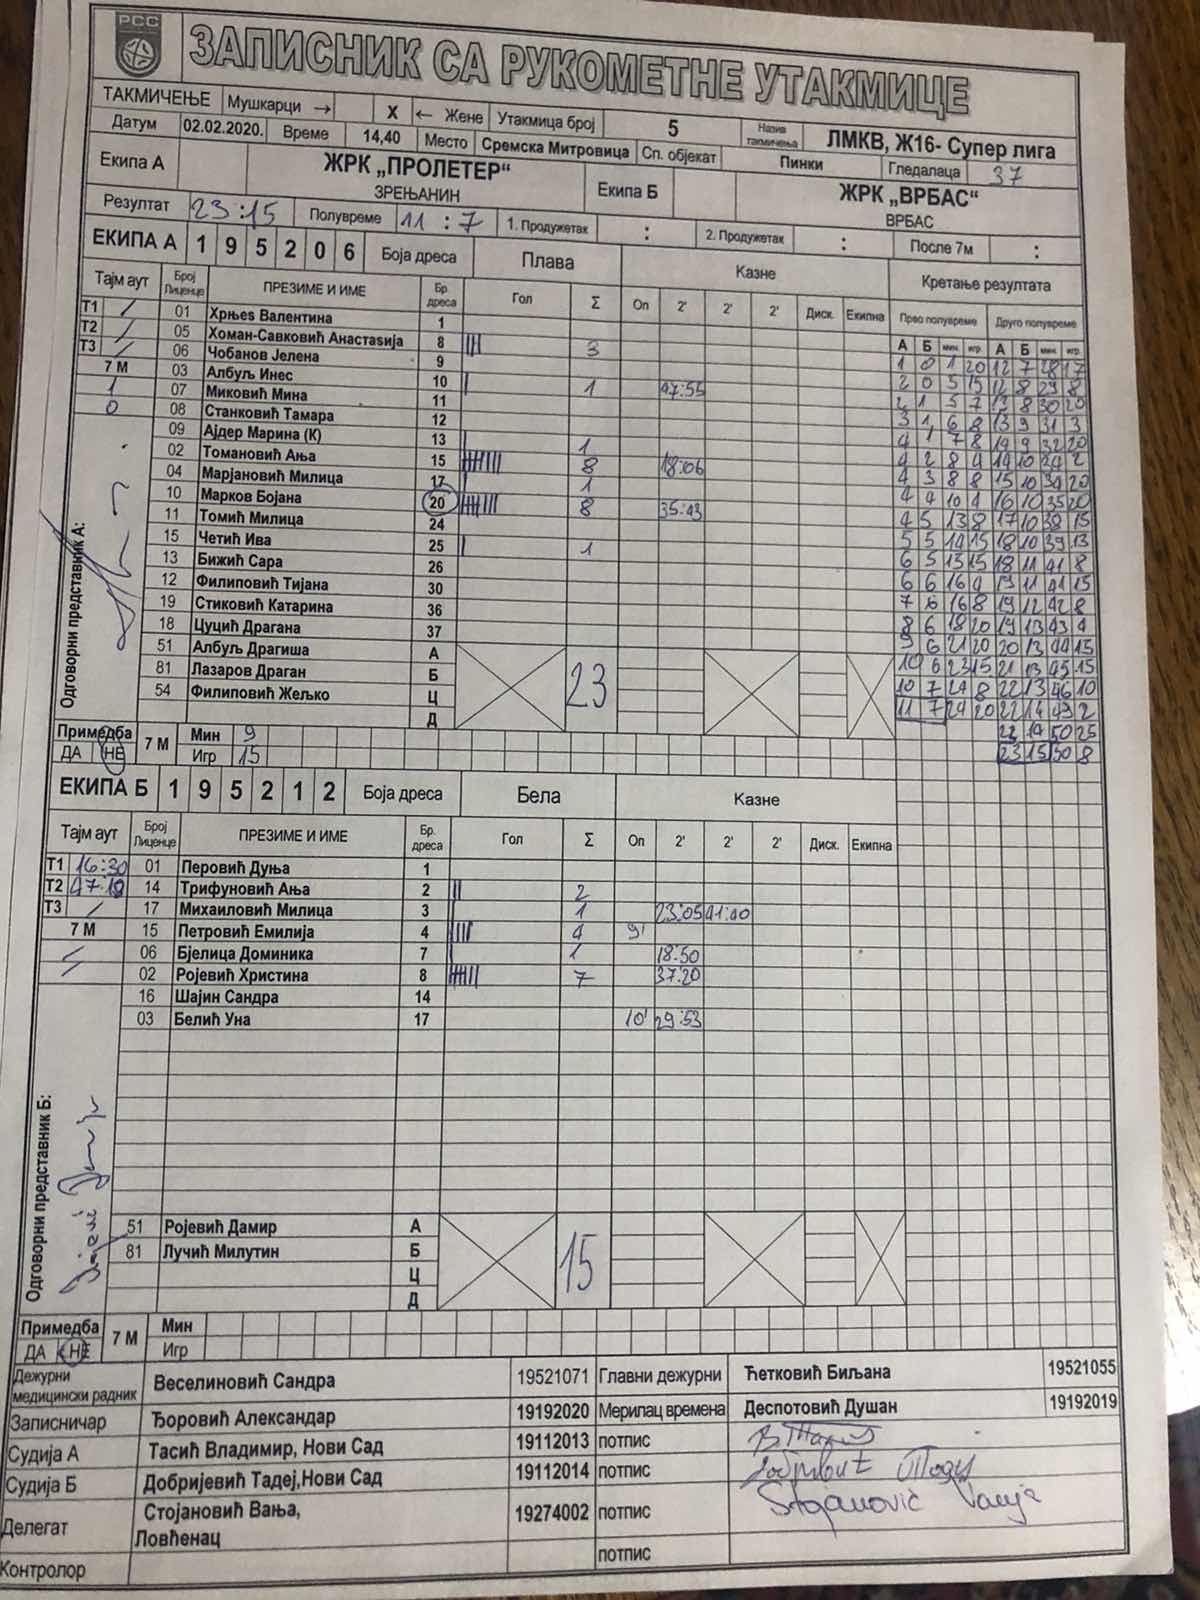 РСС
ЗАПИСНИК СА РУКОМЕТНЕ УТАКМИЦЕ
ТАКМИЧЕЊЕ Мушкарци → X ← Жене Утакмица број 5 Назив такмичења ЛМКВ, Ж16- Супер лига
Датум 02.02.2020. Време 14,40 Место Сремска Митровица Сп. објекат Пинки Гледалаца 37
Екипа А ЖРК „ПРОЛЕТЕР“ Екипа Б ЖРК „ВРБАС“
ЗРЕЊАНИН ВРБАС
Резултат 23:15 Полувреме 11 : 7 1. Продужетак : 2. Продужетак : После 7м :
ЕКИПА А 1 9 5 2 0 6 Боја дреса Плава Казне Кретање резултата
Тајм аут Број Лиценце ПРЕЗИМЕ И ИМЕ Бр. дреса Гол Σ Оп 2' 2' 2' Диск. Екипна Прво полувреме Друго полувреме
А Б мин. игр. А Б мин. игр.
Т1 / 01 Хрњес Валентина 1
Т2 / 05 Хоман-Савковић Анастазија 8 3
Т3 / 06 Чобанов Јелена 9
7 М 03 Албуљ Инес 10 1 47:55
1 07 Миковић Мина 11
0 08 Станковић Тамара 12
09 Ајдер Марина (К) 13 1
02 Томановић Ања 15 8 18:06
04 Марјановић Милица 17 1
10 Марков Бојана 20 8 35:43
11 Томић Милица 24
15 Четић Ива 25 1
13 Бижић Сара 26
12 Филиповић Тијана 30
19 Стиковић Катарина 36
18 Цуцић Драгана 37
51 Албуљ Драгиша А
81 Лазаров Драган Б 23
54 Филиповић Жељко Ц
Д
Одговорни представник А:
1 0 1 20 12 7 28 17
2 0 5 15 12 8 29 8
2 1 5 7 13 8 30 20
3 1 6 8 13 9 31 3
4 1 7 8 14 9 32 20
4 2 8 4 14 10 34 2
4 3 8 8 15 10 34 20
4 4 10 4 16 10 35 20
4 5 13 8 17 10 38 15
5 5 14 15 18 10 39 13
6 5 15 15 18 11 41 8
6 6 16 4 19 11 41 15
7 6 16 8 19 12 42 8
8 6 18 20 19 13 43 4
9 6 21 20 20 13 44 15
10 6 23 15 21 13 45 15
10 7 24 8 22 13 46 10
11 7 24 20 22 14 49 2
14 50 25
23 15 50 8
Примедба 7 М Мин 9
ДА НЕ Игр 15
ЕКИПА Б 1 9 5 2 1 2 Боја дреса Бела Казне
Тајм аут Број Лиценце ПРЕЗИМЕ И ИМЕ Бр. дреса Гол Σ Оп 2' 2' 2' Диск. Екипна
Т1 16:30 01 Перовић Дуња 1
Т2 01 14 Трифуновић Ања 2 2
Т3 / 17 Михаиловић Милица 3 1 23:05 41:40
7 М 15 Петровић Емилија 4 4 9'
06 Бјелица Доминика 7 1 18:50
02 Ројевић Христина 8 7 37:20
16 Шајин Сандра 14
03 Белић Уна 17 10' 29:53
Одговорни представник Б:
51 Ројевић Дамир А
81 Лучић Милутин Б 15
Ц
Д
Примедба 7 М Мин
ДА НЕ Игр
Дежурни медицински радник Веселиновић Сандра 19521071 Главни дежурни Ћетковић Биљана 19521055
Записничар Ђоровић Александар 19192020 Мерилац времена Деспотовић Душан 19192019
Судија А Тасић Владимир, Нови Сад 19112013 потпис
Судија Б Добријевић Тадеј,Нови Сад 19112014 потпис
Делегат Стојановић Вања, 19274002 потпис Stojanović Vanja
Ловћенац
Контролор потпис